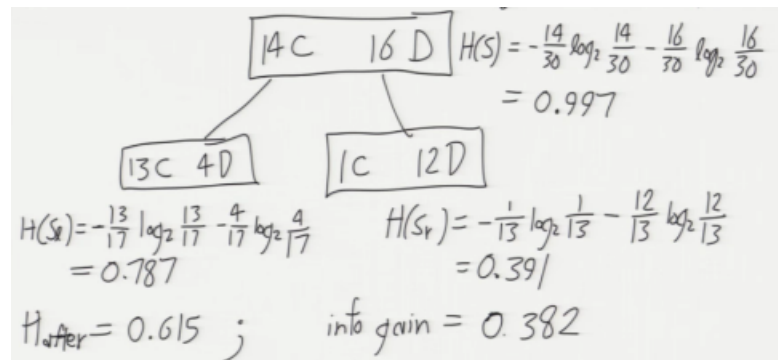 14C 16D H(S) = -14/30 log₂ 14/30 - 16/30 log₂ 16/30
= 0.997
13C 4D 1C 12D
H(Sₗ) = -13/17 log₂ 13/17 - 4/17 log₂ 4/17 H(Sᵣ) = -1/13 log₂ 1/13 - 12/13 log₂ 12/13
= 0.787 = 0.391
H_after = 0.615 ; info gain = 0.382